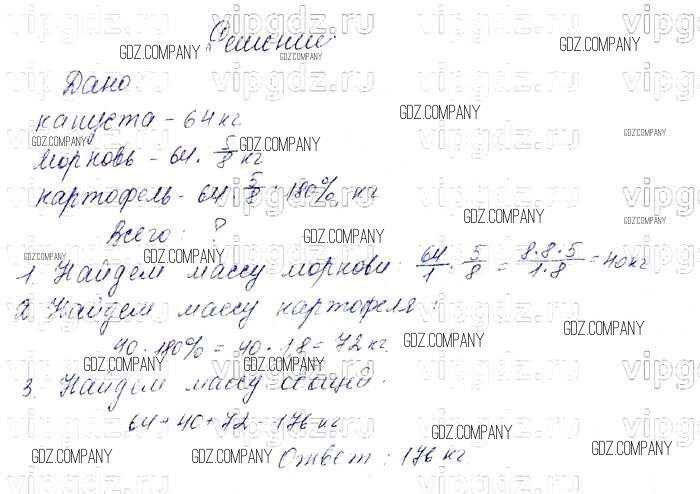 Решение:
Дано:
капуста - 64 кг
морковь - 64 · 5/8 кг
картофель - 64 · 5/8 · 180% кг
Всего: ?
1. Найдем массу моркови: 64/1 · 5/8 = 8·8·5/1·8 = 40 кг
2. Найдем массу картофеля:
40 · 180% = 40 · 1,8 = 72 кг.
3. Найдем массу овощей.
64 + 40 + 72 = 176 кг
Ответ: 176 кг
vipgdz.ru
GDZ.COMPANY